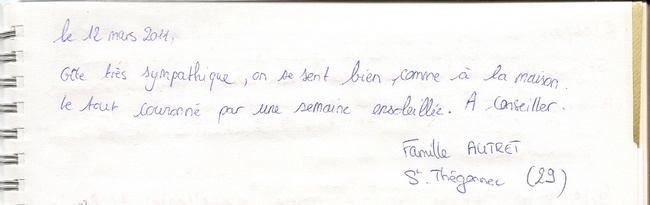 le 12 mars 2011,
Gîte très sympathique, on se sent bien, comme à la maison.
le tout couronné par une semaine ensoleillée. A conseiller.
Famille AUTRET
St. Thégonnec (29)